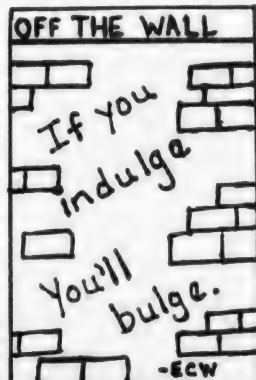 OFF THE WALL
If you
indulge
You'll
bulge.
-ECW